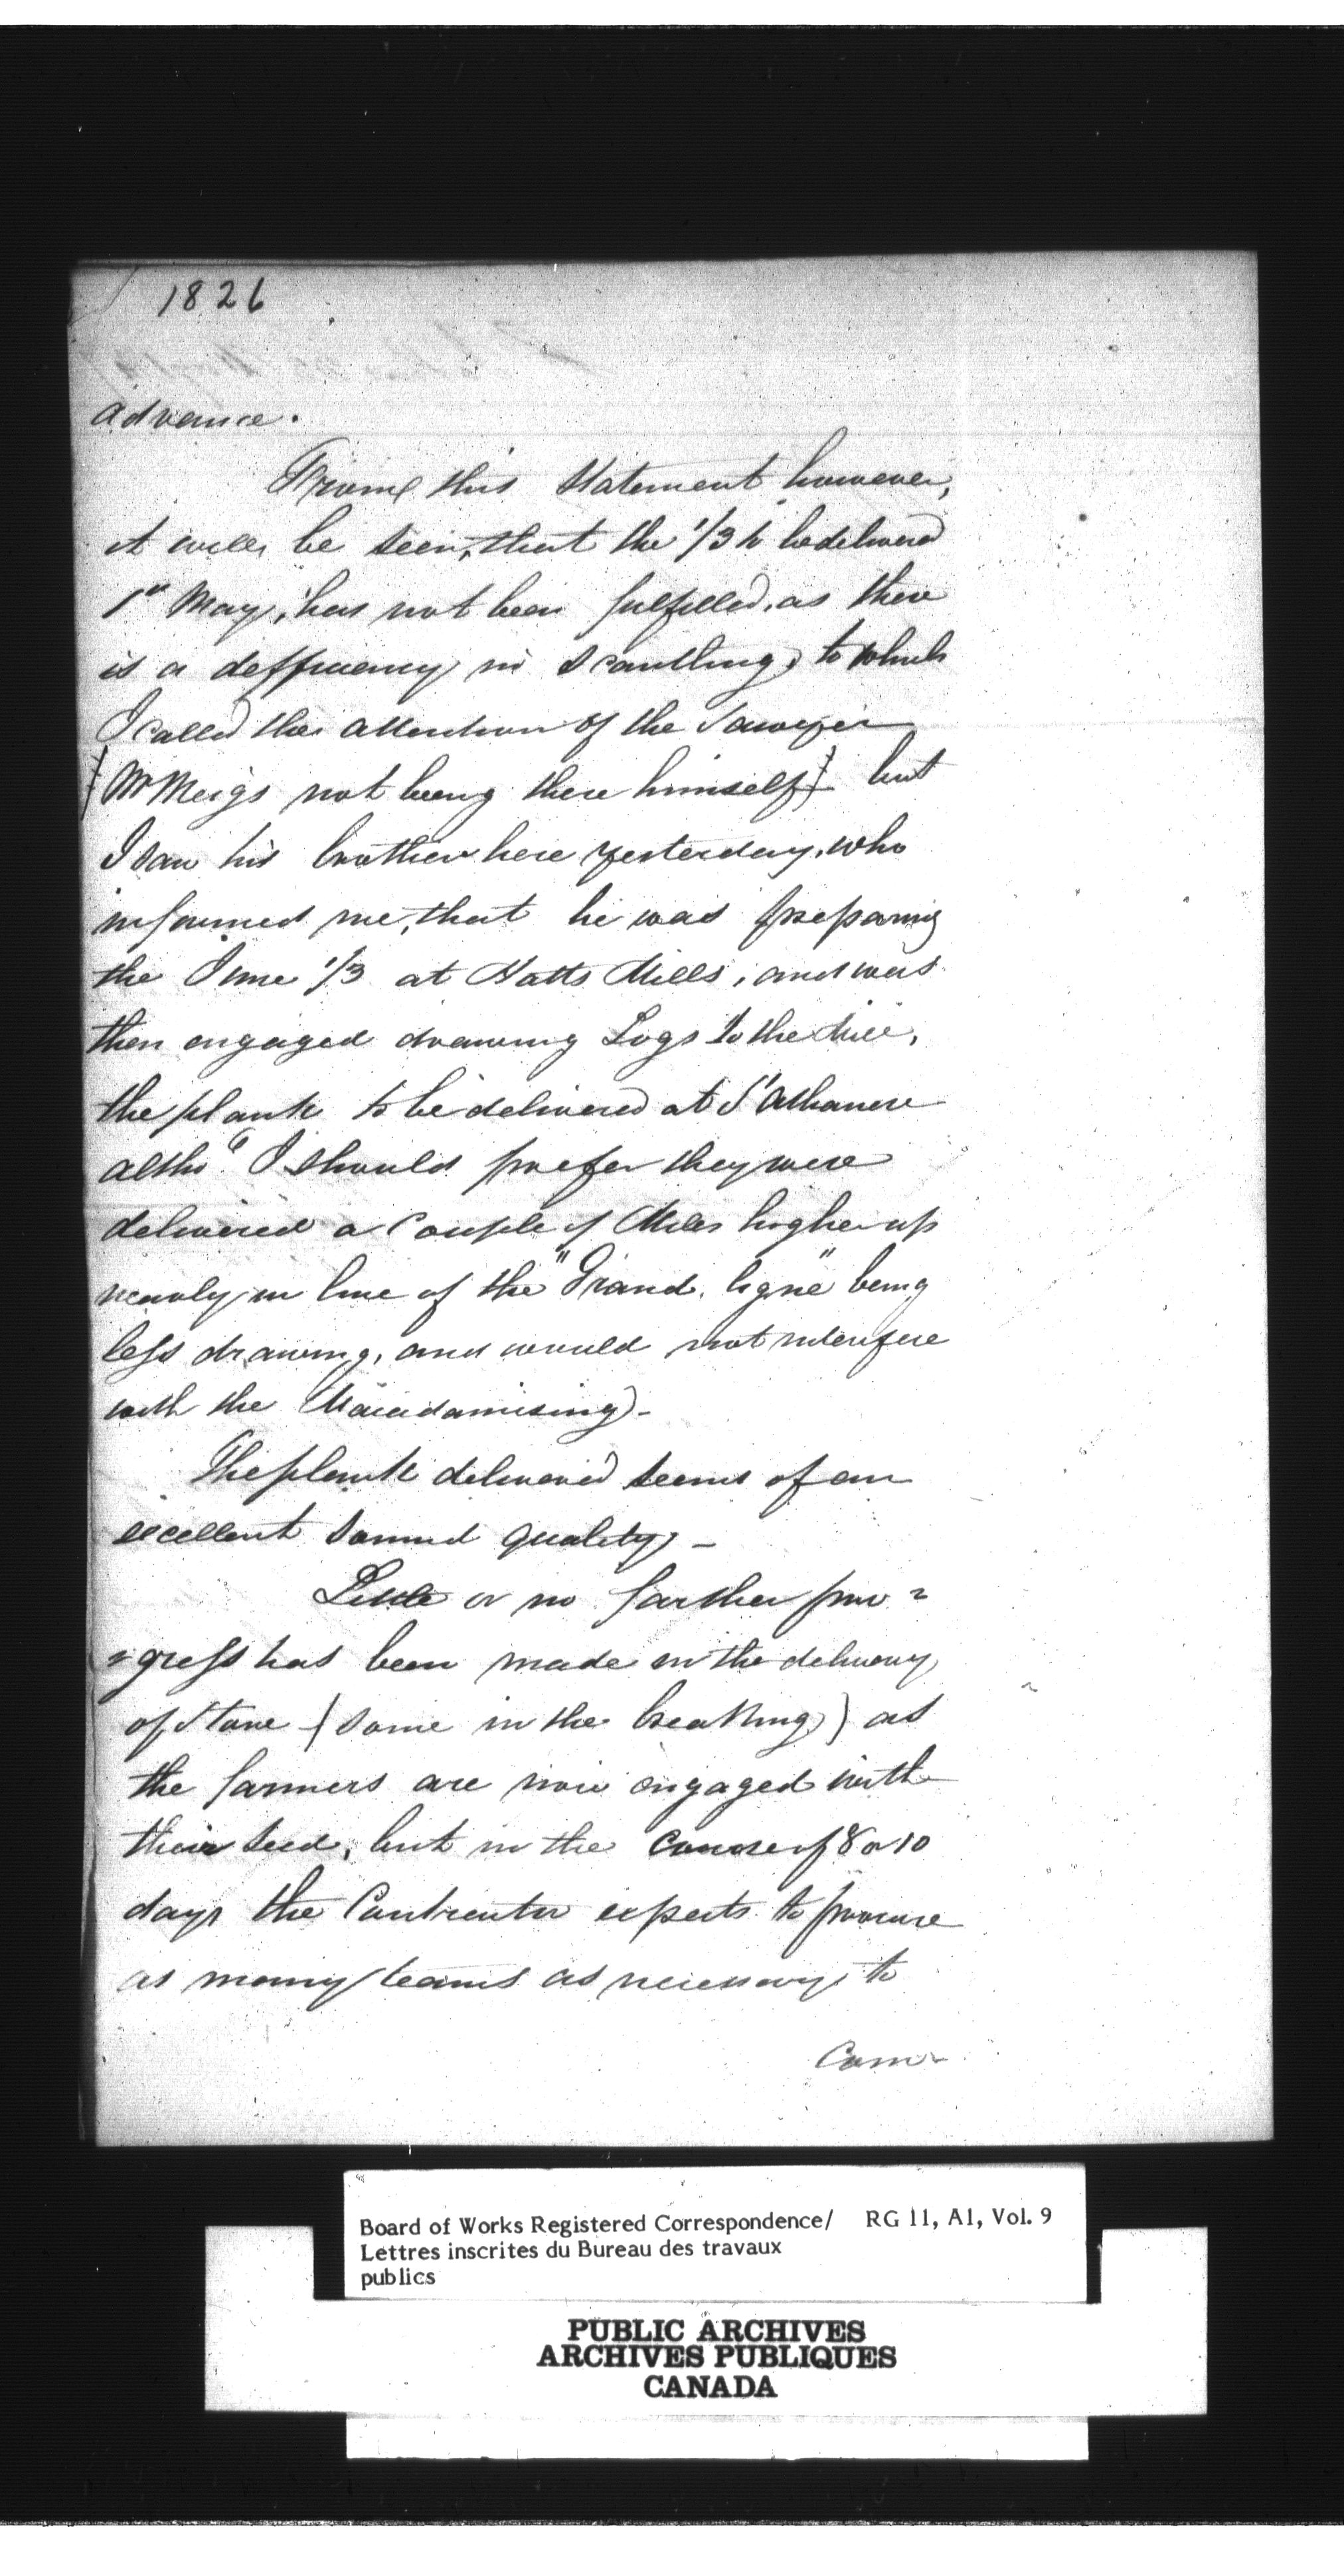 1826
advance.
From this Statement however,
it will be seen, that the 1/3 to be delivered
1st May, has not been fulfilled, as there
is a defficiency in Scantling, to which
I called the attention of the Sawyer
(Mr Meigs not being there himself) but
I saw his brother here yesterday, who
informed me, that he was preparing
the June 1/3 at Hatts Mills, and was
then engaged drawing Logs to the Mill,
the plank to be delivered at St Athanese
altho' I should prefer they were
delivered a Couple of Miles higher up
nearly in line of the "Grand ligne" being
less drawing, and would not interfere
with the Macadamising -
The plank delivered seems of an
excellent sound quality, -
Little or no farther pro=
=gress has been made in the delivery
of Stone (some in the breaking) as
the farmers are now engaged with
their seed, but in the course of 8 or 10
days the Contractor expects to procure
as many teams as necessary, to
Com-
Board of Works Registered Correspondence/ RG 11, A1, Vol. 9
Lettres inscrites du Bureau des travaux
publics
PUBLIC ARCHIVES
ARCHIVES PUBLIQUES
CANADA